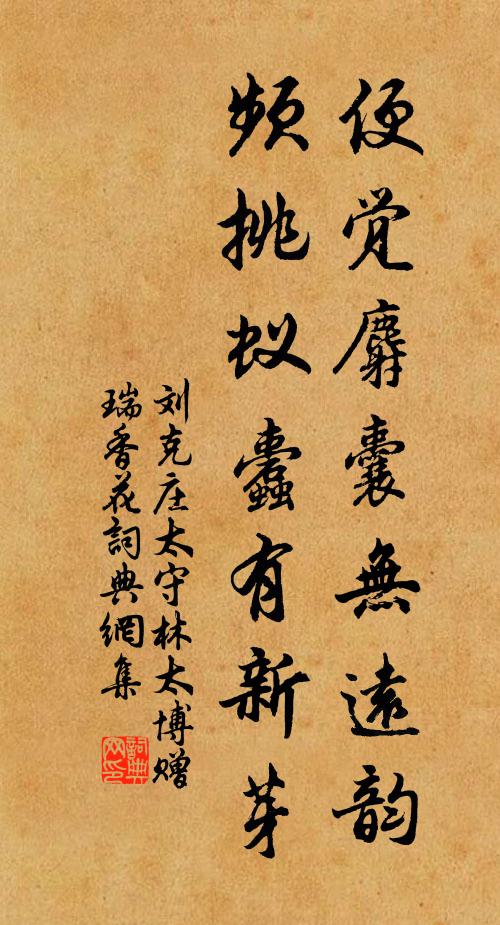 便觉麝囊無遠韵
频挑蚁蠹有新芽
刘克庄太守林太博赠
瑞香花詞典網集
詞典
网印